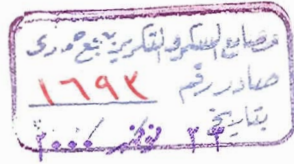 مصانع السكر والتكرير بنجع حمادى
صادر رقم ١٦٩٣
بتاريخ
٢٣ نوفمبر ٢٠٠٠